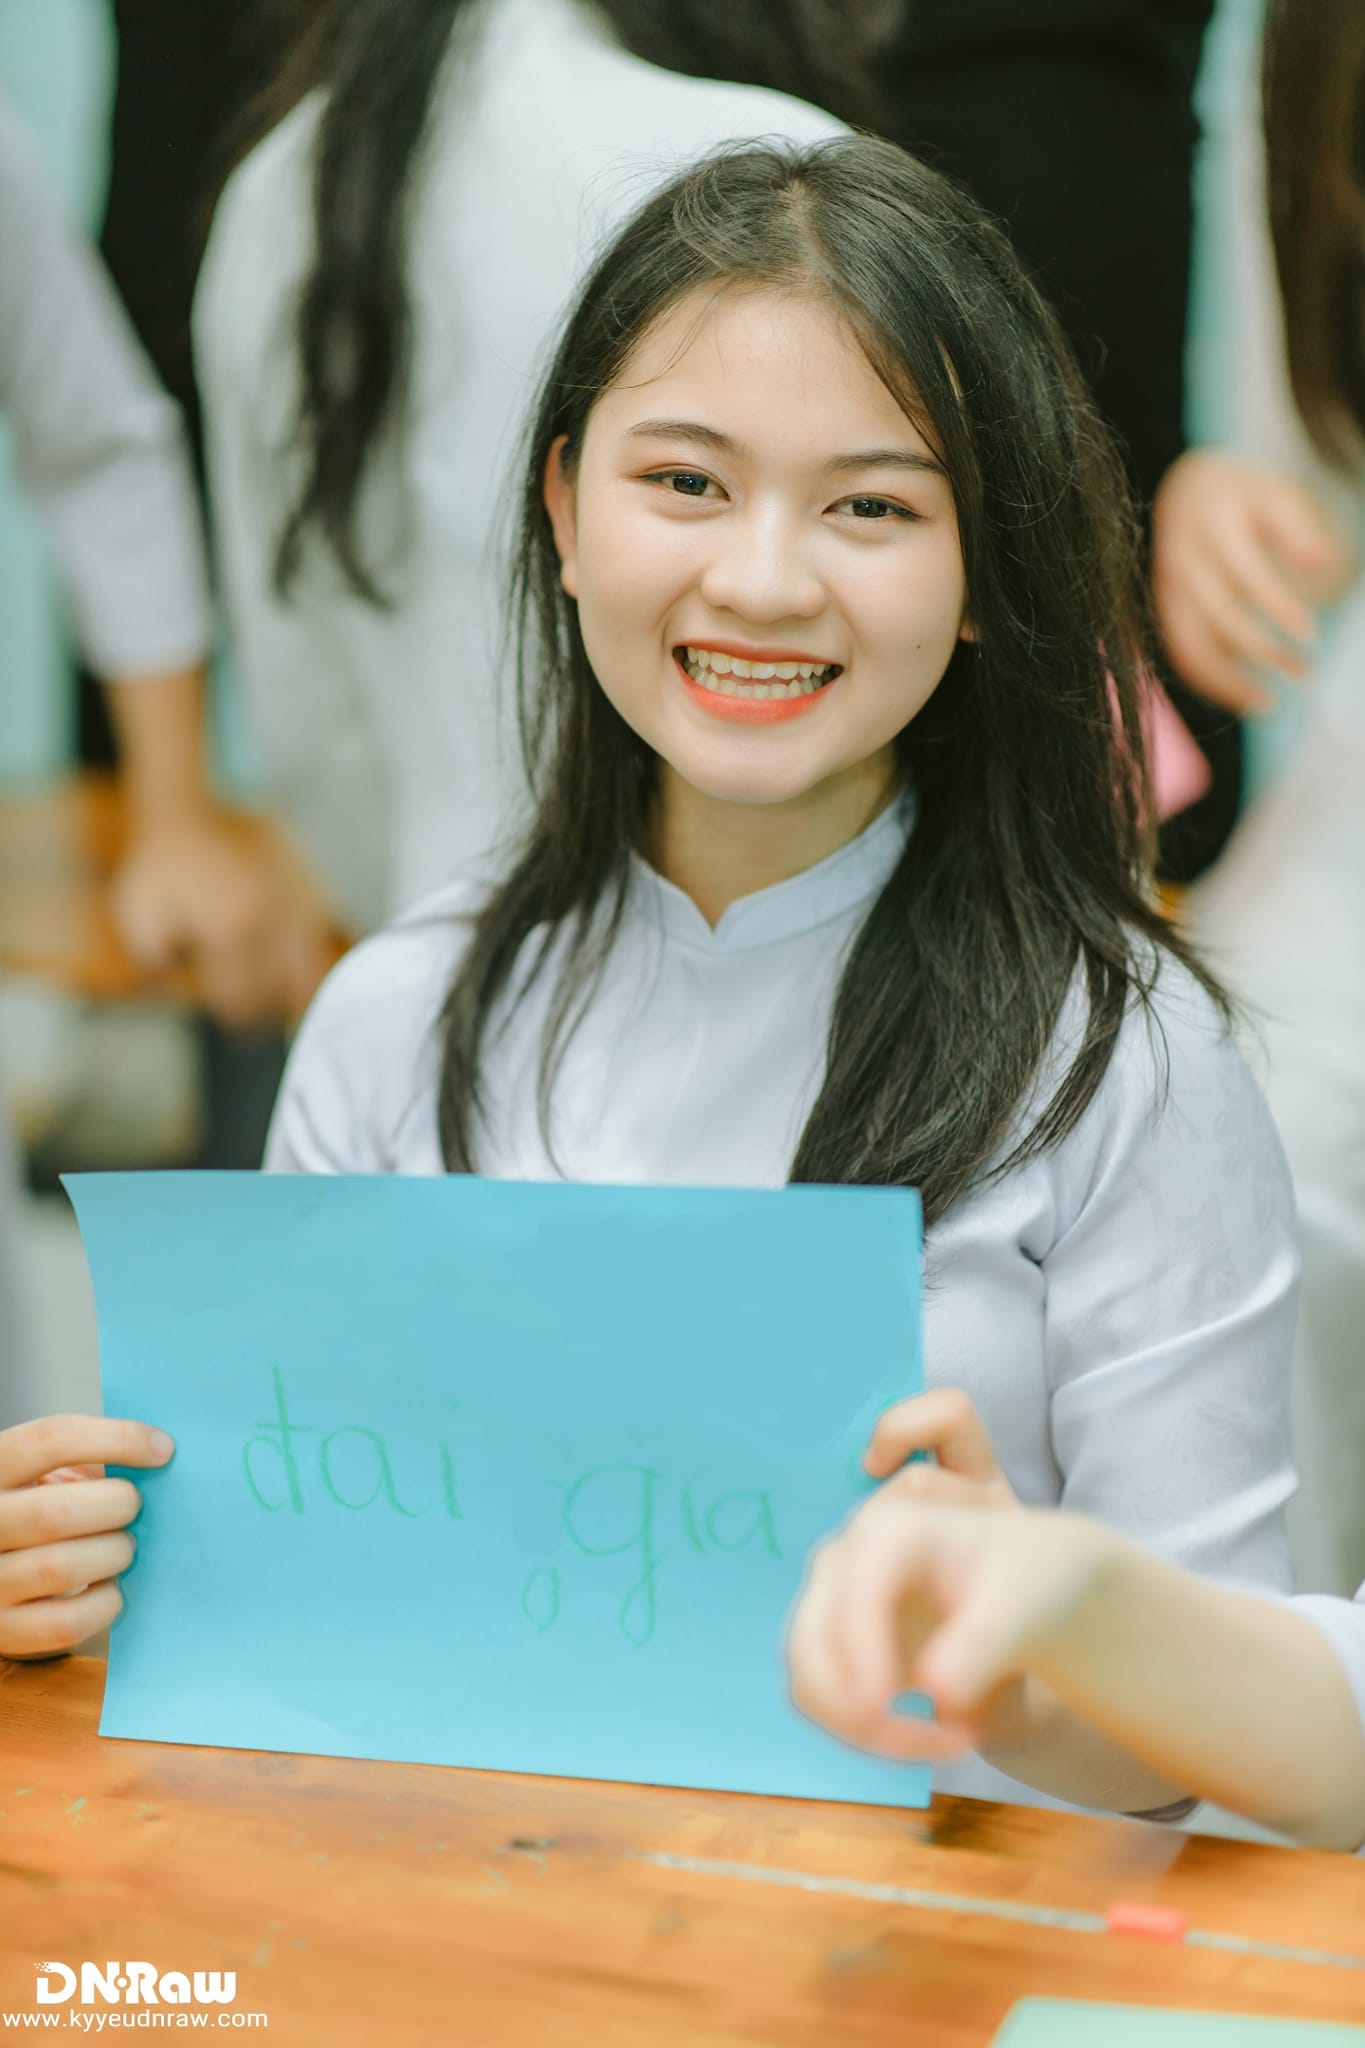 đại gia
DNRaw
www.kyyeudnraw.com